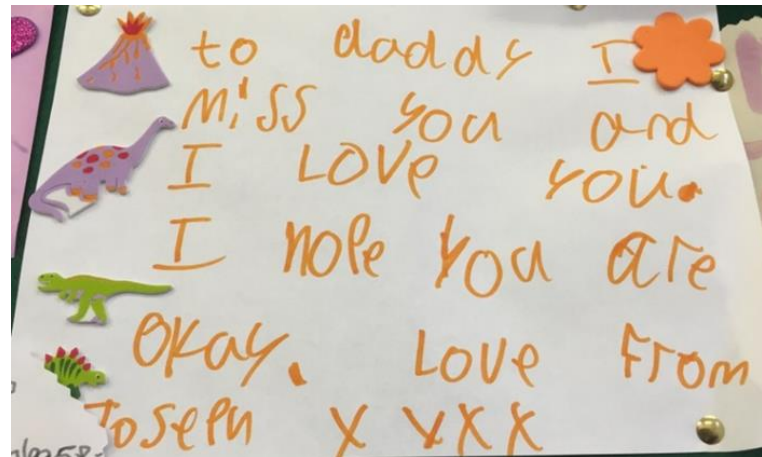 to daddy I
miss you and
I LOVe you.
I hope you are
Okay. Love From
Joseph X X X X